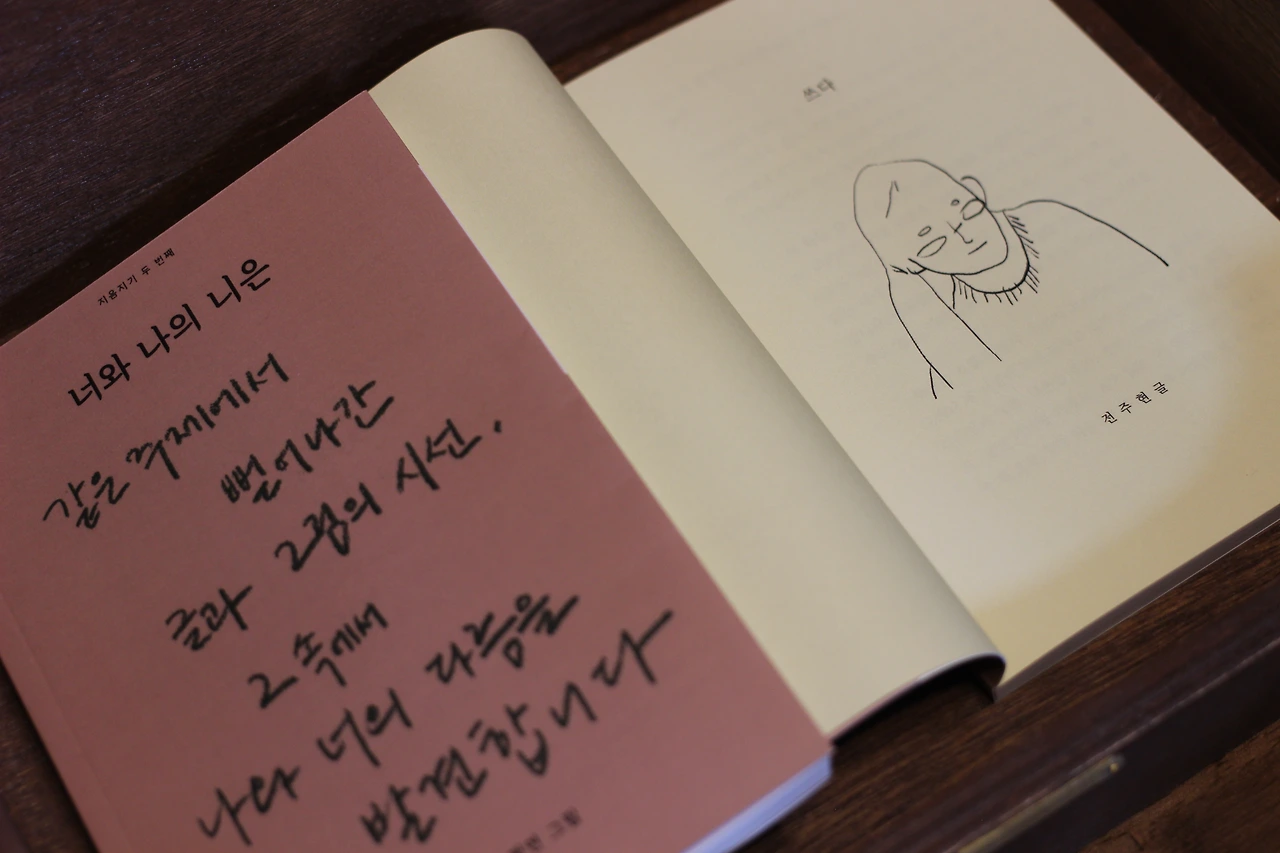 지음지기 두 번째
너와 나의 니은
같은 주제에서
뻗어나간
그림의 시선.
글과
그 속에서
나와 너의 다름을
발견합니다
그림
쓰다
전주현 글